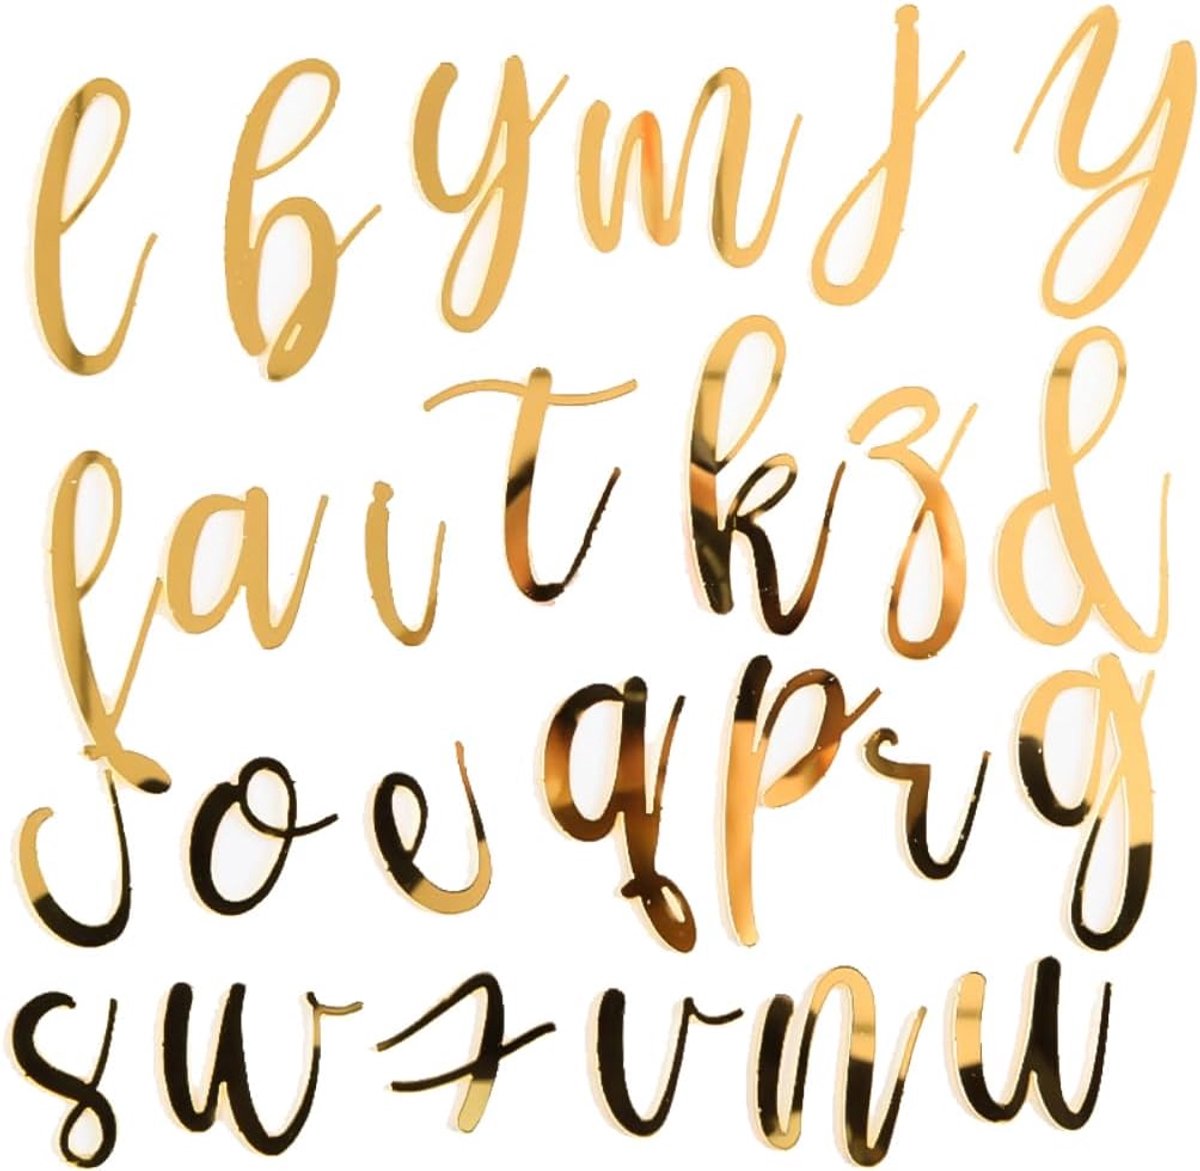 l b y m j y
f a i t k z d
c o e q p r g
s w x v n u